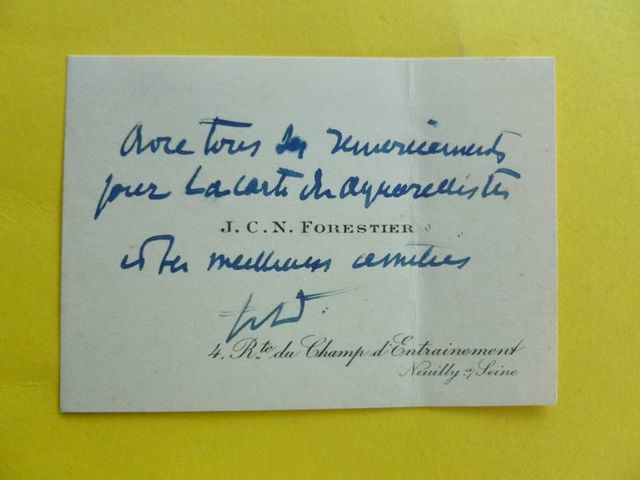 Avec tous ses remerciements
pour la carte des aquarellistes
J. C. N. FORESTIER
et ses meilleures amitiés
4, Rte du Champ d'Entrainement
Neuilly s/ Seine